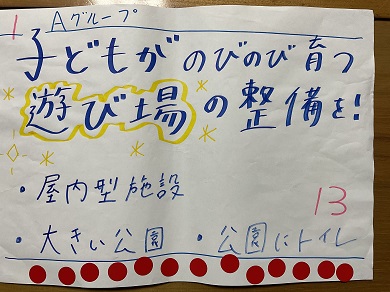 1 Aグループ
子どもがのびのび育つ
遊び場の整備を!
・屋内型施設
13
・大きい公園 ・公園にトイレ